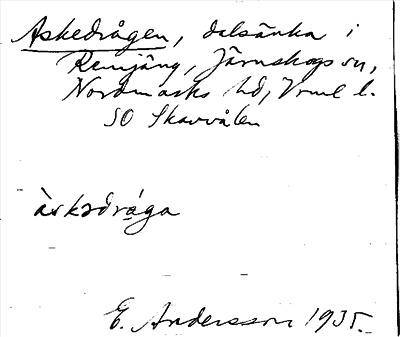 Askedrågen, dalsänka i
Remjäng, Järnskogs sn,
Nordmarks hd, Vrml l.
SO Skavvålen
àskədråga
E. Andersson 1935.